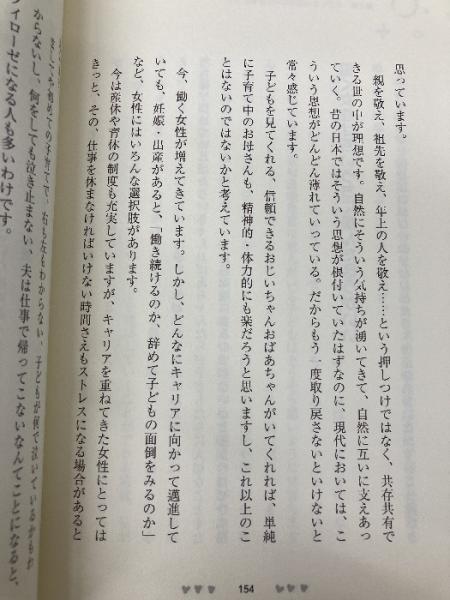 思っています。
親を敬え、祖先を敬え、年上の人を敬え……という押しつけではなく、共存共有で
きる世の中が理想です。自然にそういう気持ちが湧いてきて、自然に互いに支えあっ
ていく。昔の日本ではそういう思想が根付いていたはずなのに、現代においては、こ
ういう思想がどんどん薄れていっている。だからもう一度取り戻さないといけないと
常々感じています。
子どもを見てくれる、信頼できるおじいちゃんおばあちゃんがいてくれれば、単純
に子育て中のお母さんも、精神的・体力的にも楽だろうと思いますし、これ以上のこ
とはないのではないかと考えています。
今、働く女性が増えてきています。しかし、どんなにキャリアに向かって邁進して
いても、妊娠・出産があると、「働き続けるのか、辞めて子どもの面倒をみるのか」
など、女性にはいろんな選択肢があります。
今は産休や育休の制度も充実していますが、キャリアを重ねてきた女性にとっては
きっと、その、仕事を休まなければいけない時間さえもストレスになる場合があると
154
子育てで、右も左もわからない、子どもが何で泣いているかもわ
からないし、何をしても泣き止まない、夫は仕事で帰ってこないなんてことになると、
イローゼになる人も多いわけです。